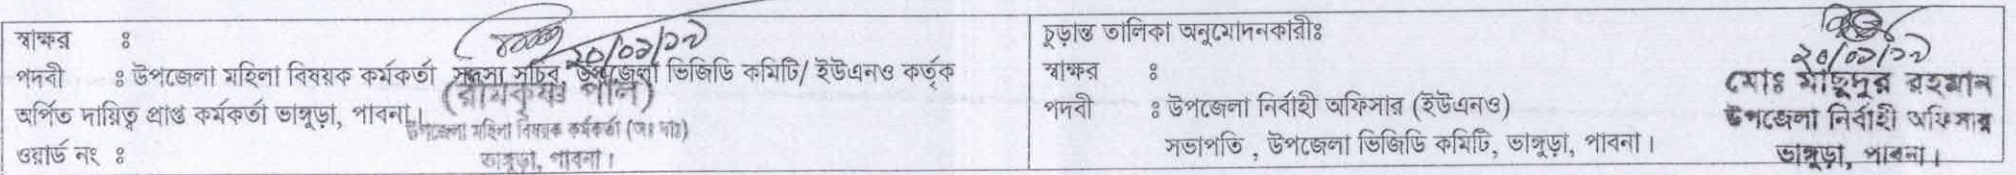 স্বাক্ষর ঃ
২০/০১/১৯
পদবী ঃ উপজেলা মহিলা বিষয়ক কর্মকর্তা সদস্য সচিব, উপজেলা ভিজিডি কমিটি/ ইউএনও কর্তৃক
(রামকৃষ্ণ পাল)
অর্পিত দায়িত্ব প্রাপ্ত কর্মকর্তা ভাঙ্গুড়া, পাবনা।
উপজেলা মহিলা বিষয়ক কর্মকর্তা
ওয়ার্ড নং ঃ
ভাঙ্গুড়া, পাবনা।
চুড়ান্ত তালিকা অনুমোদনকারীঃ
স্বাক্ষর ঃ
পদবী ঃ উপজেলা নির্বাহী অফিসার (ইউএনও)
সভাপতি , উপজেলা ভিজিডি কমিটি, ভাঙ্গুড়া, পাবনা।
২০/০১/১৯
মোঃ মাছুদুর রহমান
উপজেলা নির্বাহী অফিসার
ভাঙ্গুড়া, পাবনা।